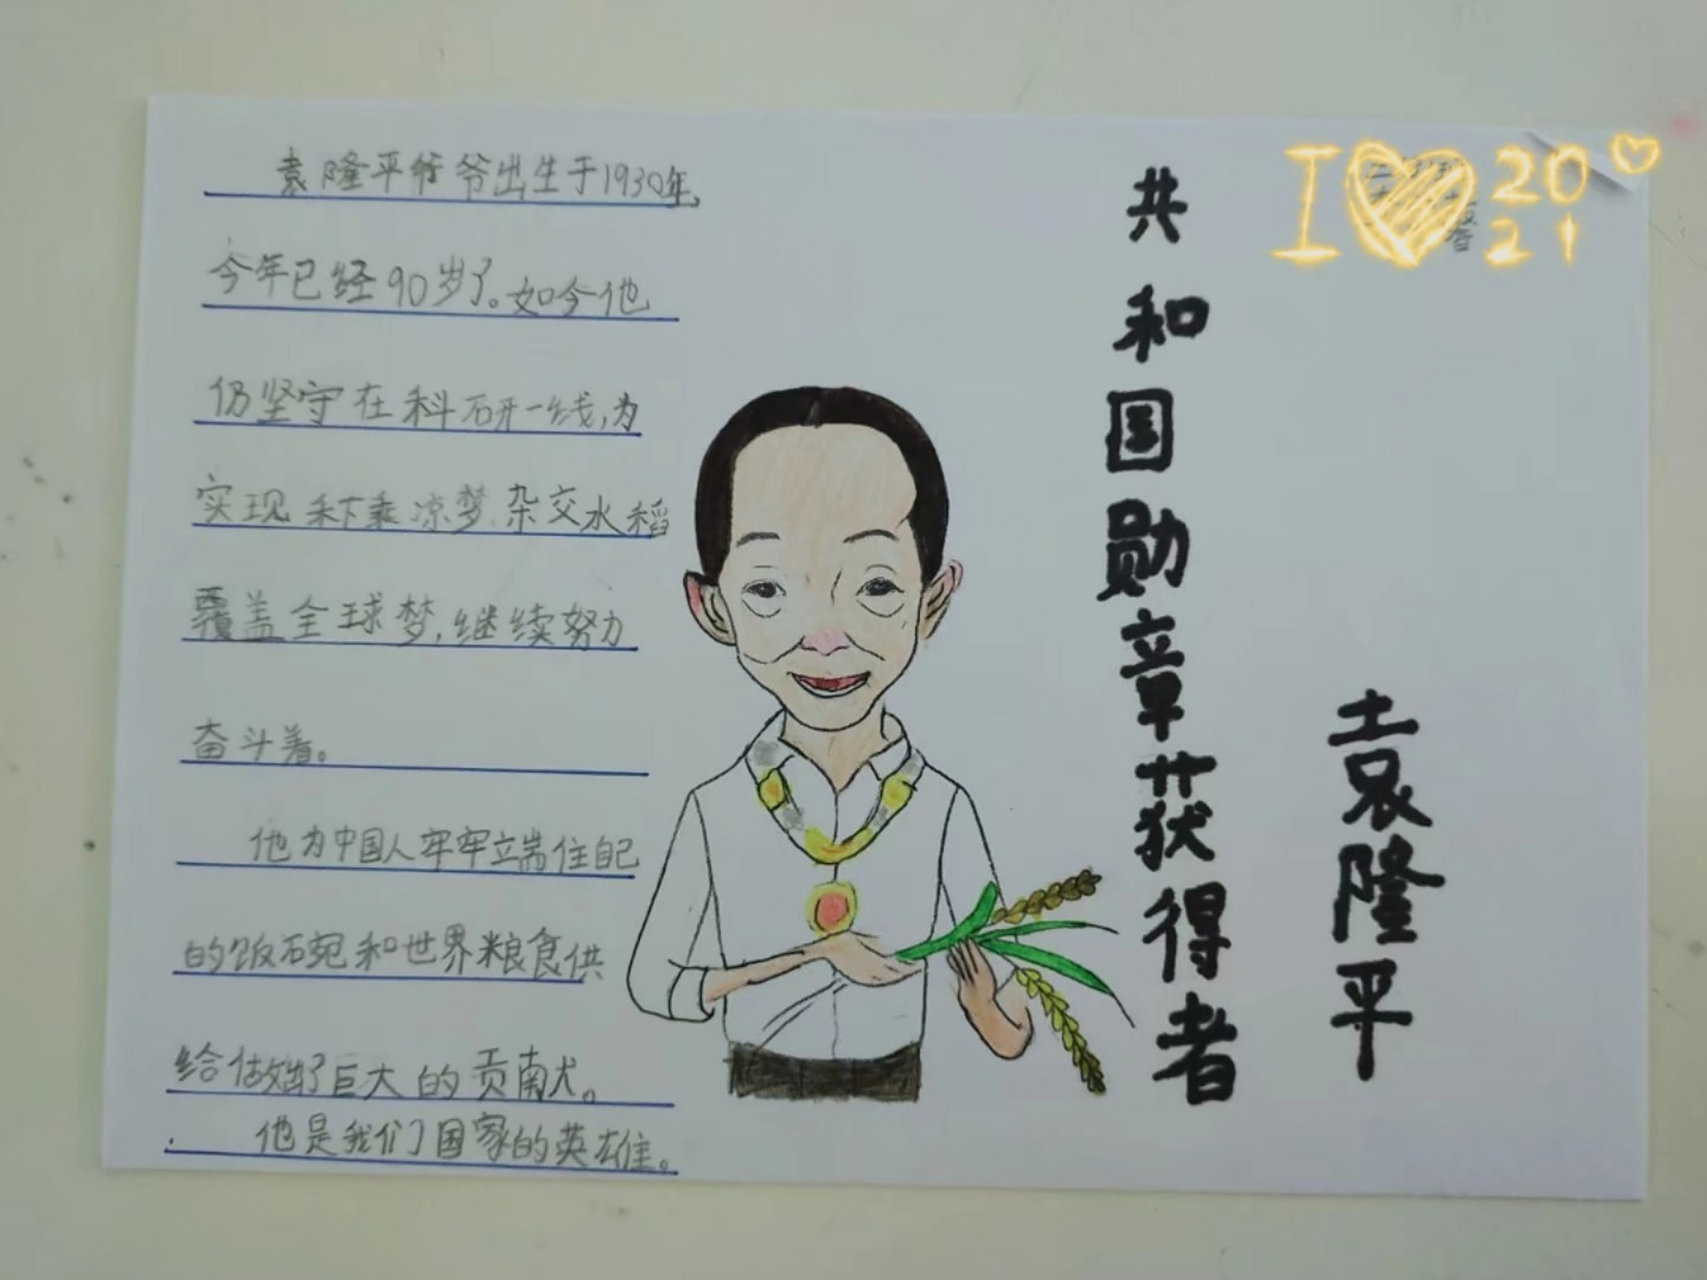 袁隆平爷爷出生于1930年,
今年已经90岁了。如今他
仍坚守在科研一线,为
实现禾下乘凉梦、杂交水稻
覆盖全球梦,继续努力
奋斗着。
他为中国人牢牢端住自己
的饭碗和世界粮食供
给做出了巨大的贡献。
他是我们国家的英雄。
共和国勋章获得者
袁隆平
I 20
21